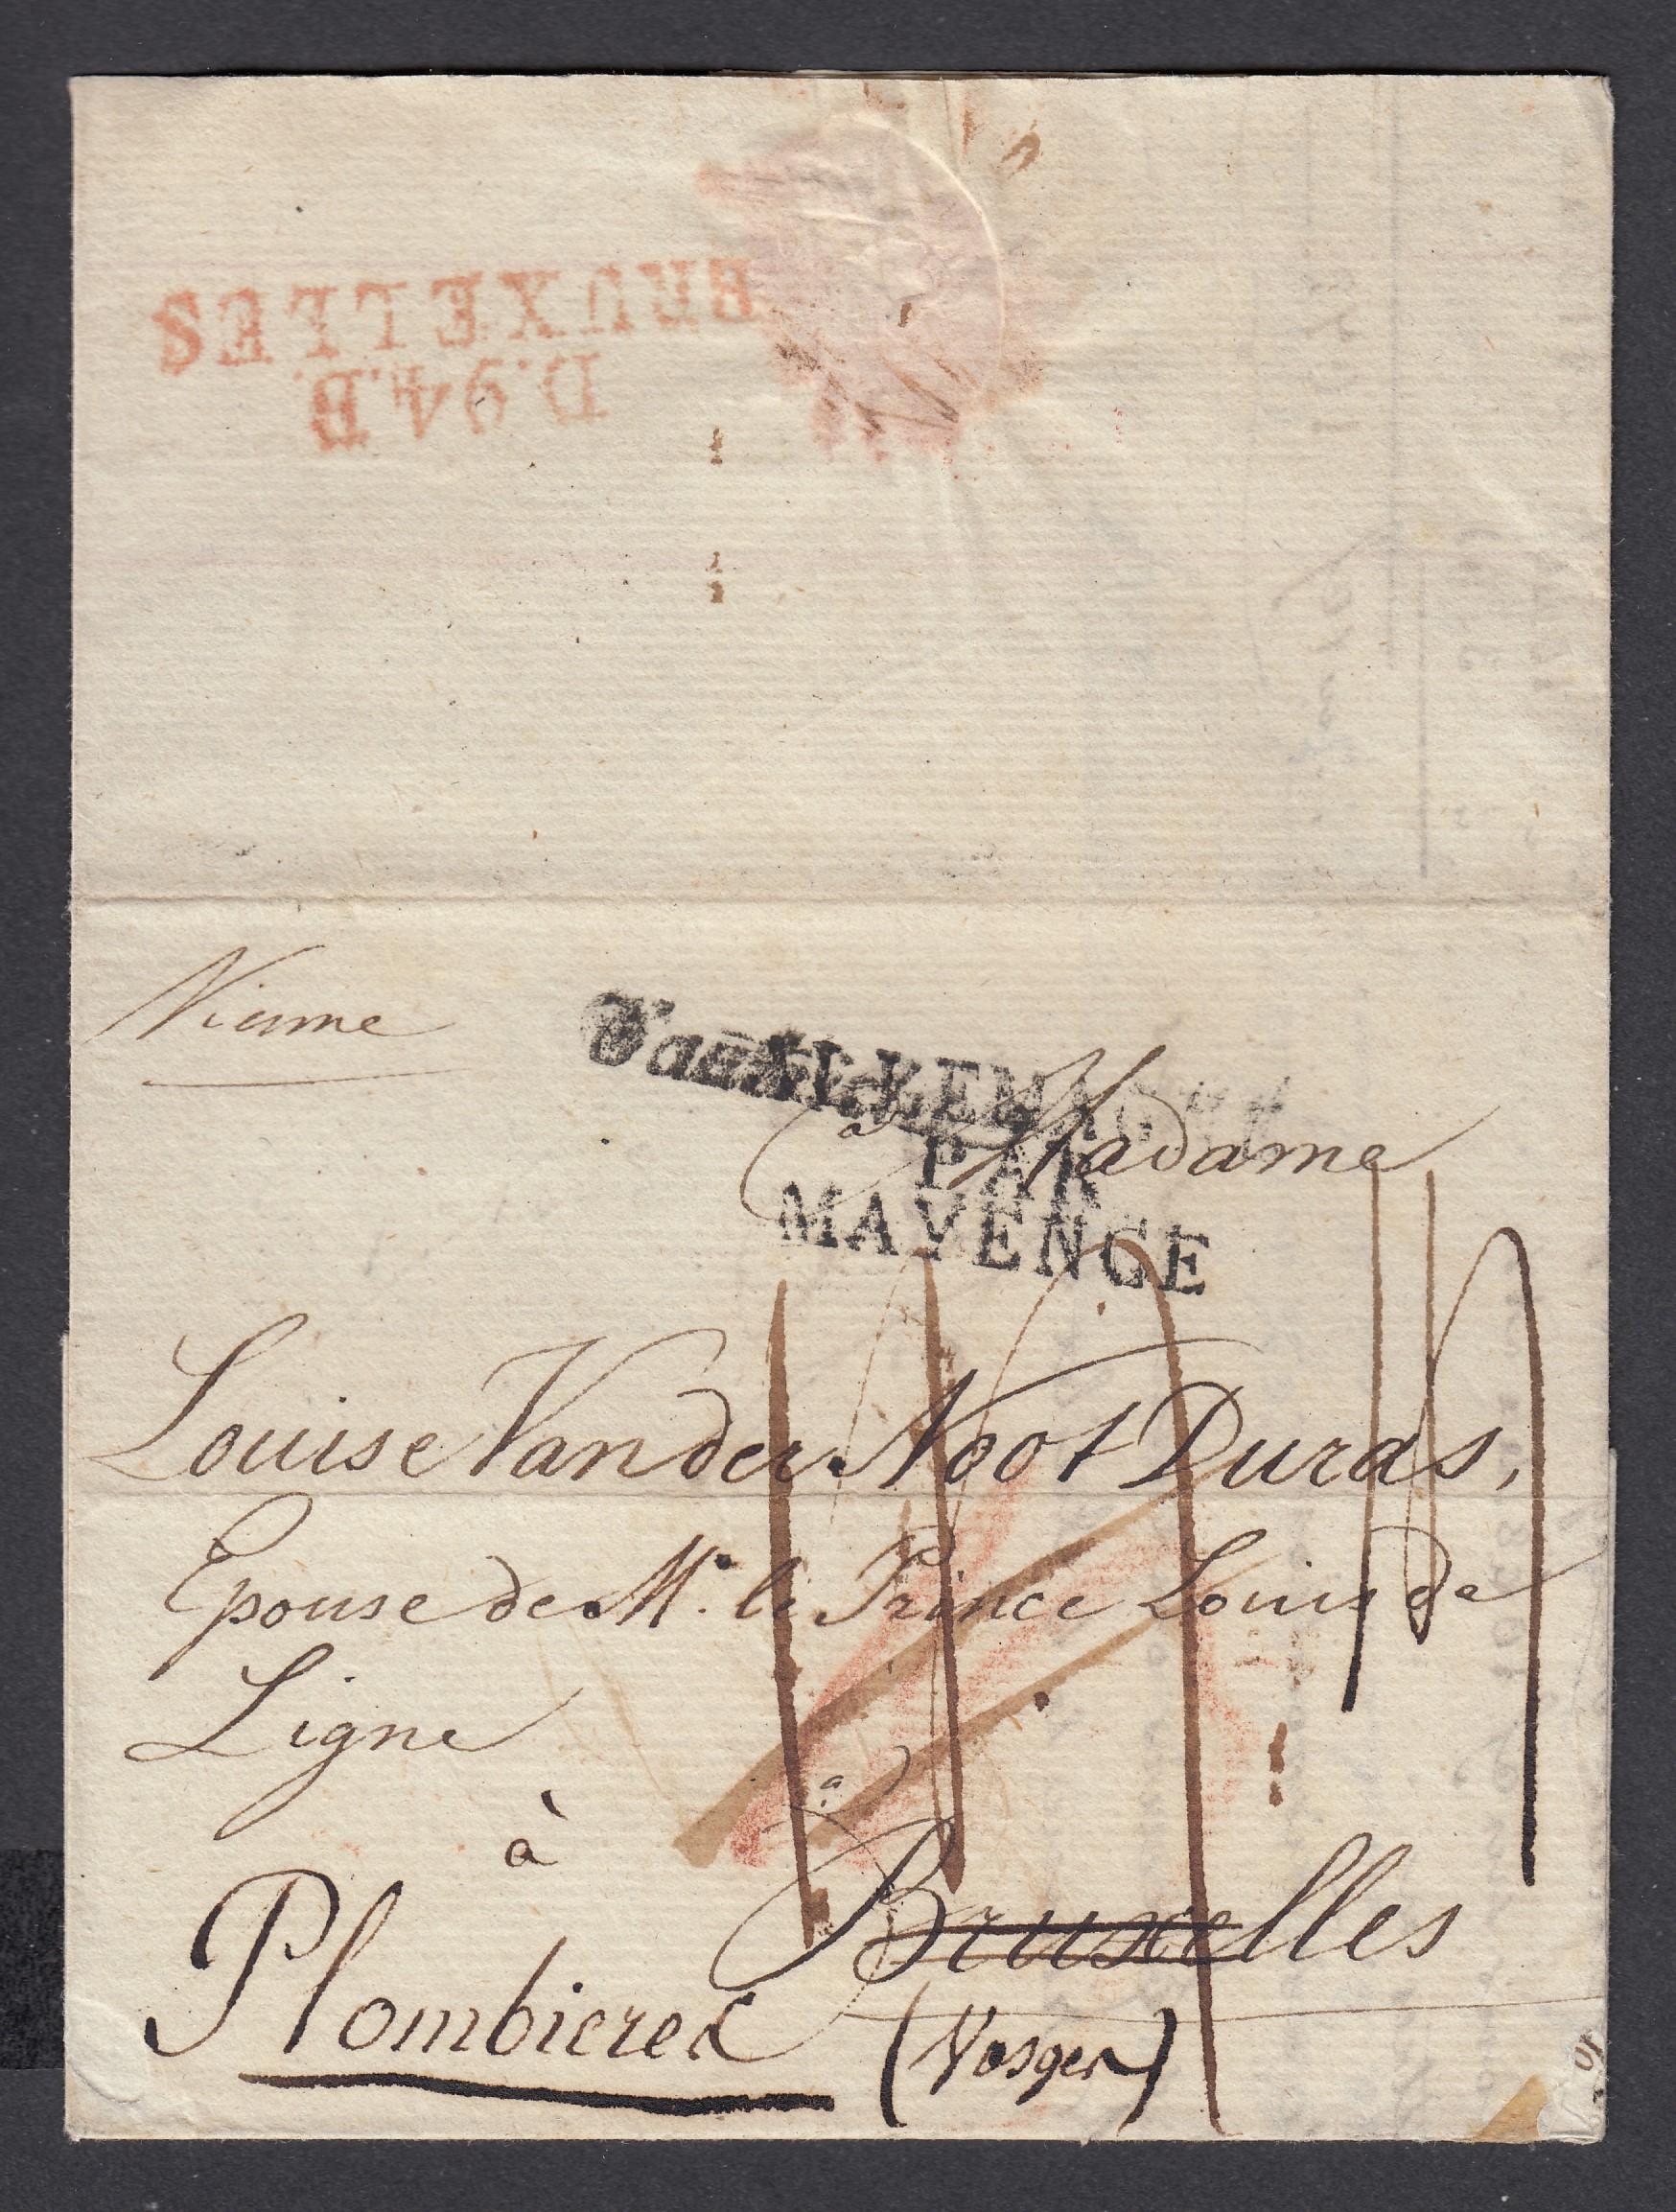 BRUXELLES
D.94.B.
Vienne
ALLEMAGNE
à Madame
PAR
MAYENCE
Louise Vander Noot Duras,
Epouse de Mr. le Prince Louis de
Ligne
à
à Bruxelles
Plombieres (Vosges)